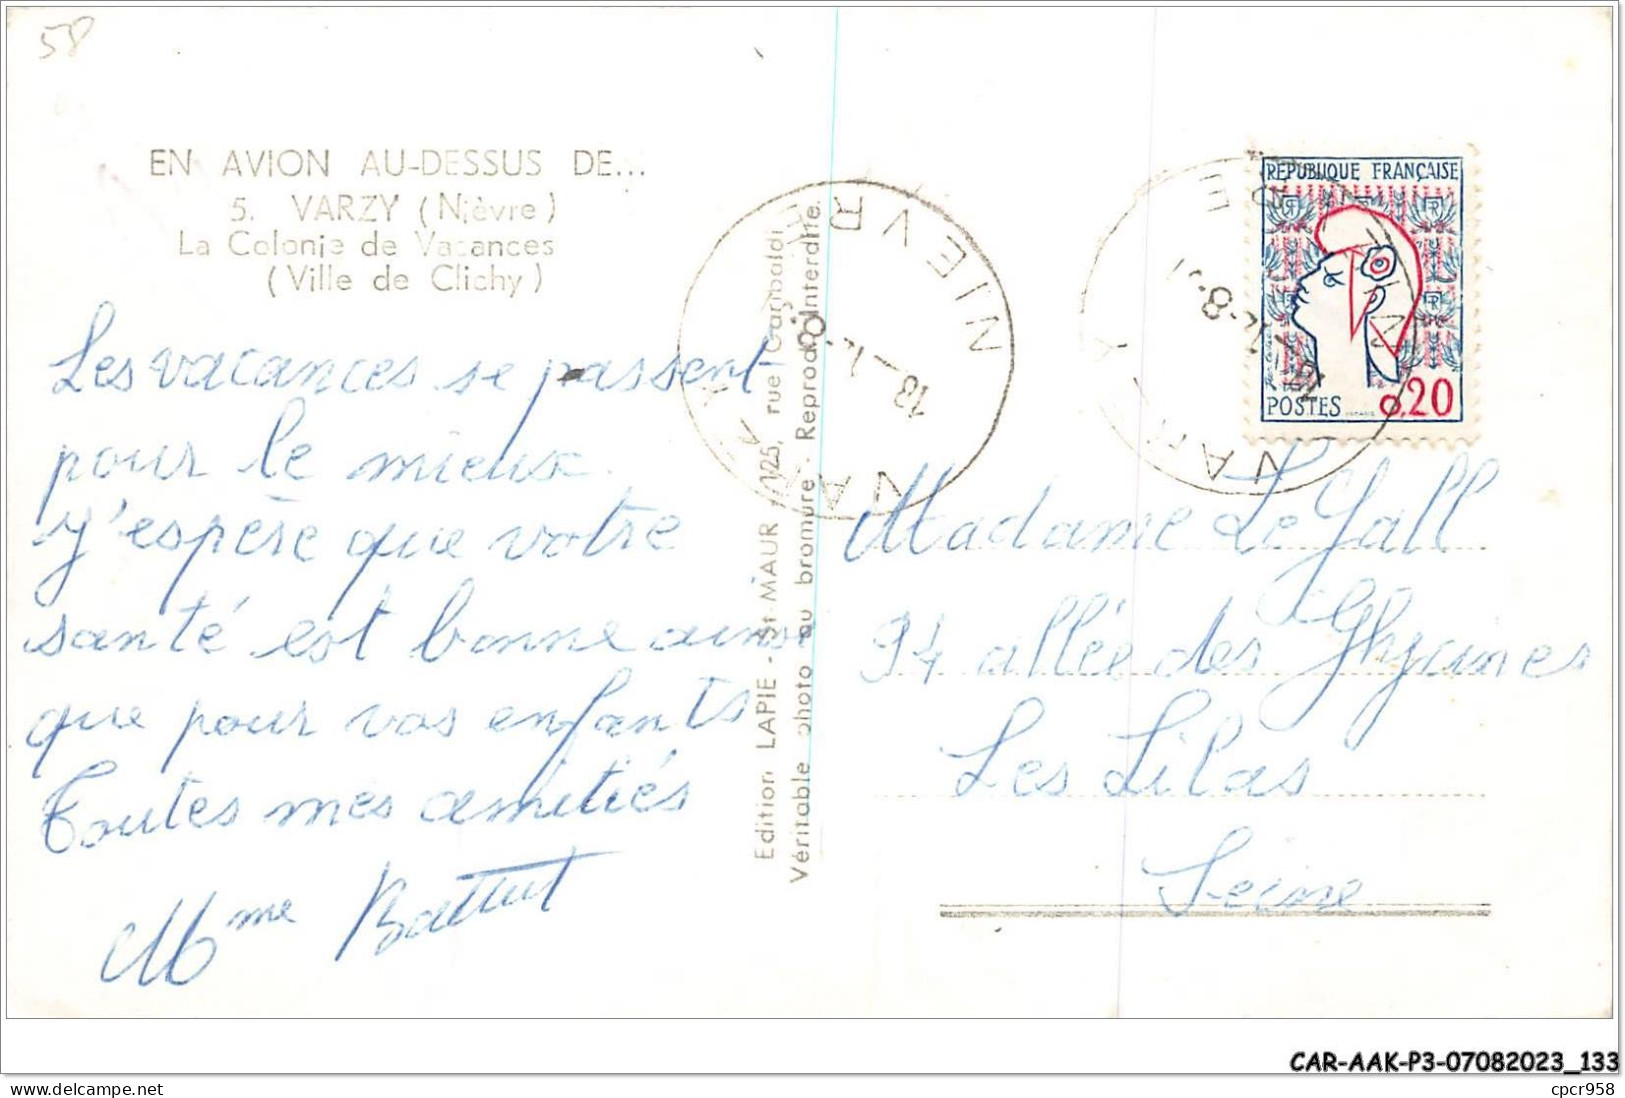 58
EN AVION AU-DESSUS DE...
5. VARZY (Nièvre)
La Colonie de Vacances
(Ville de Clichy)
Les vacances se passent
pour le mieux.
J'espère que votre
santé est bonne ainsi
que pour vos enfants
Toutes mes amitiés
Mme Battut
Edition LAPIE - St-MAUR - 125, rue Garibaldi
Véritable photo au bromure - Reprod. Interdite.
VARZY
NIEVRE
VARZY
REPUBLIQUE FRANÇAISE
POSTES 0,20
Madame Le Gall
94 allée des
Les Lilas
Seine
CAR-AAK-P3-07082023_133
www.delcampe.net
cpcr958